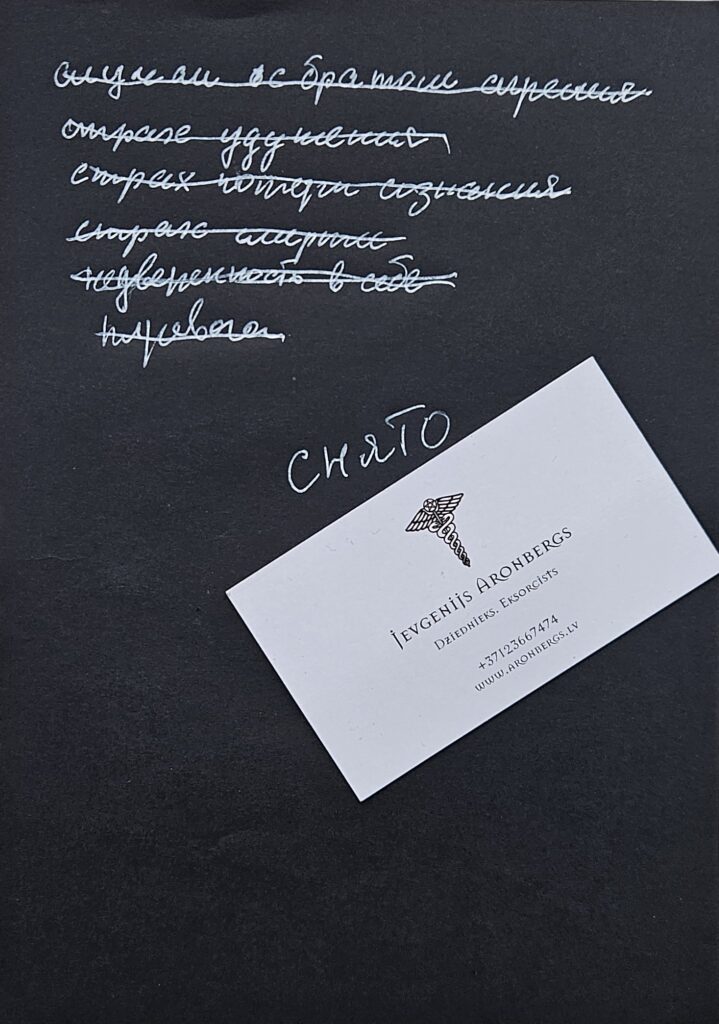 случай с братом
страх удушения
страх потери сознания
страх смерти
недверенность в себе
тревога
СНЯТО
Jevgenijs Aronbergs
Dziednieks. Eksorcists
+37123667474
www.aronbergs.lv